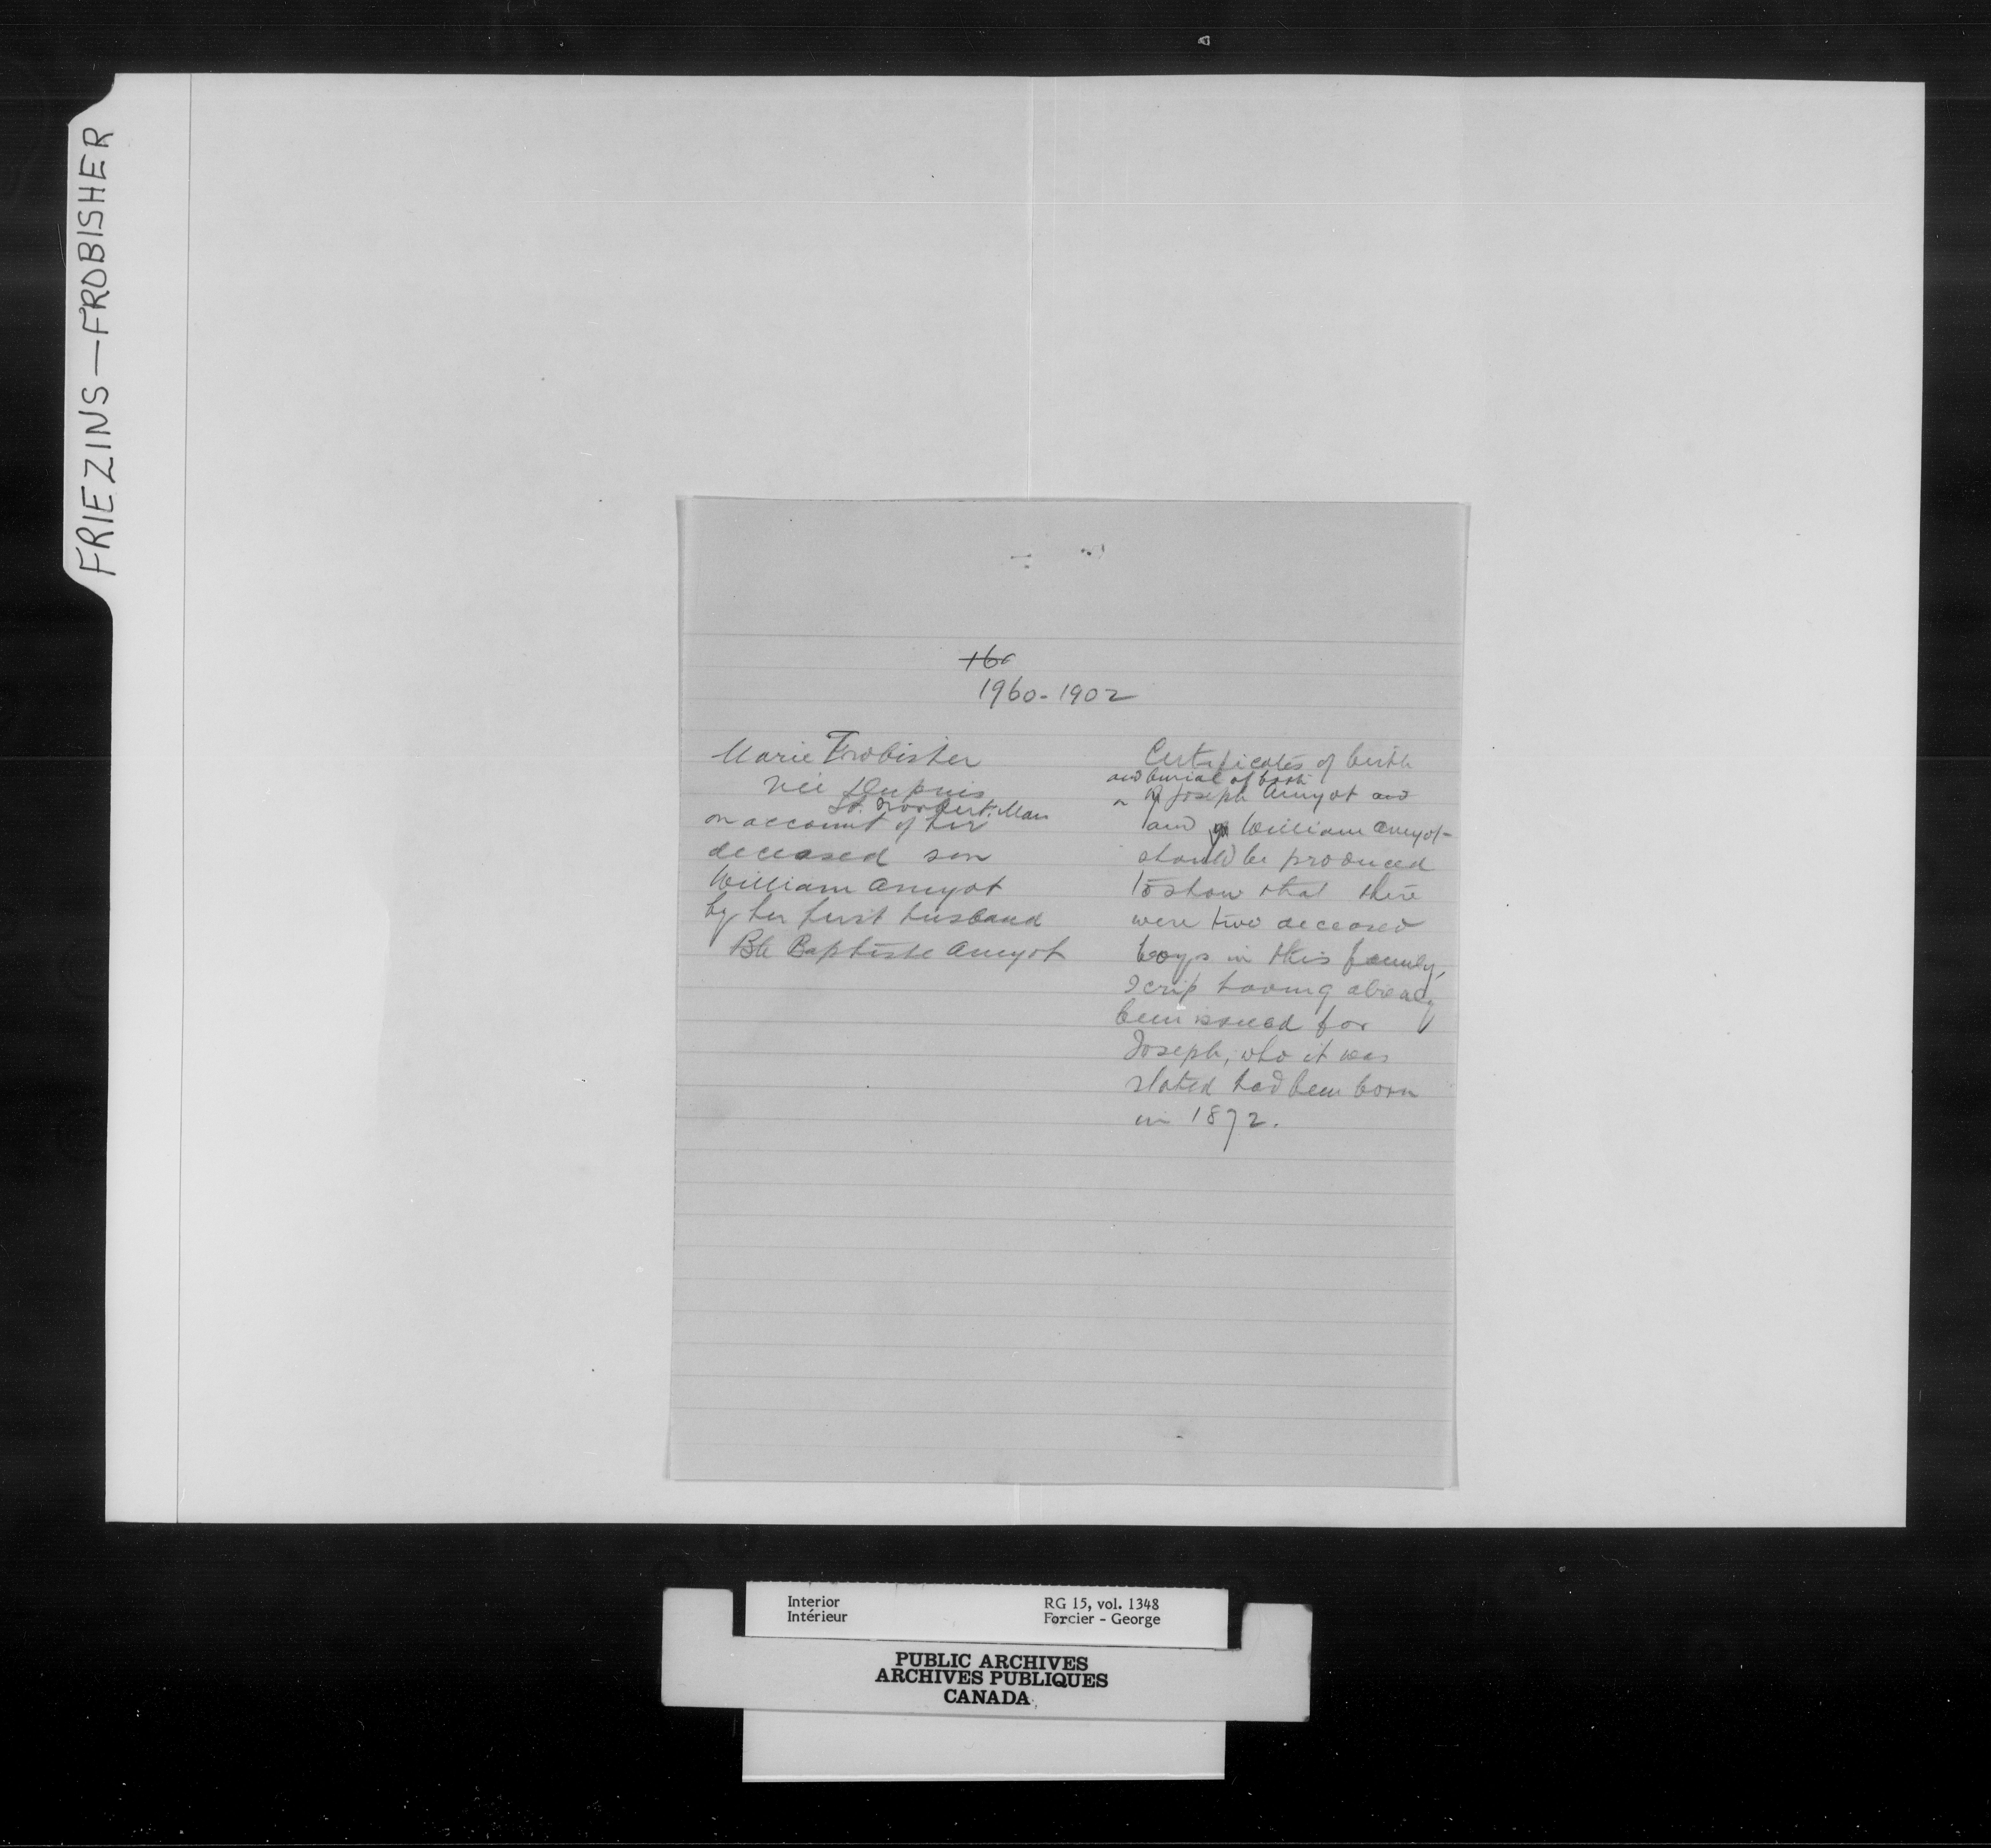 FRIEZINS—FROBISHER
1960-1902
Marie Frobisher
née Dupuis
St. Norbert. Man
on account of her
deceased son
William Amyot
by her first husband
Bte Baptiste Amyot
Certificates of birth
and burial of both
of Joseph Amyot and
and William Amyot
should be produced
to show that there
were two deceased
boys in this family,
scrip having already
been issued for
Joseph, who it was
stated had been born
in 1872.
Interior
Intérieur
RG 15, vol. 1348
Forcier - George
PUBLIC ARCHIVES
ARCHIVES PUBLIQUES
CANADA